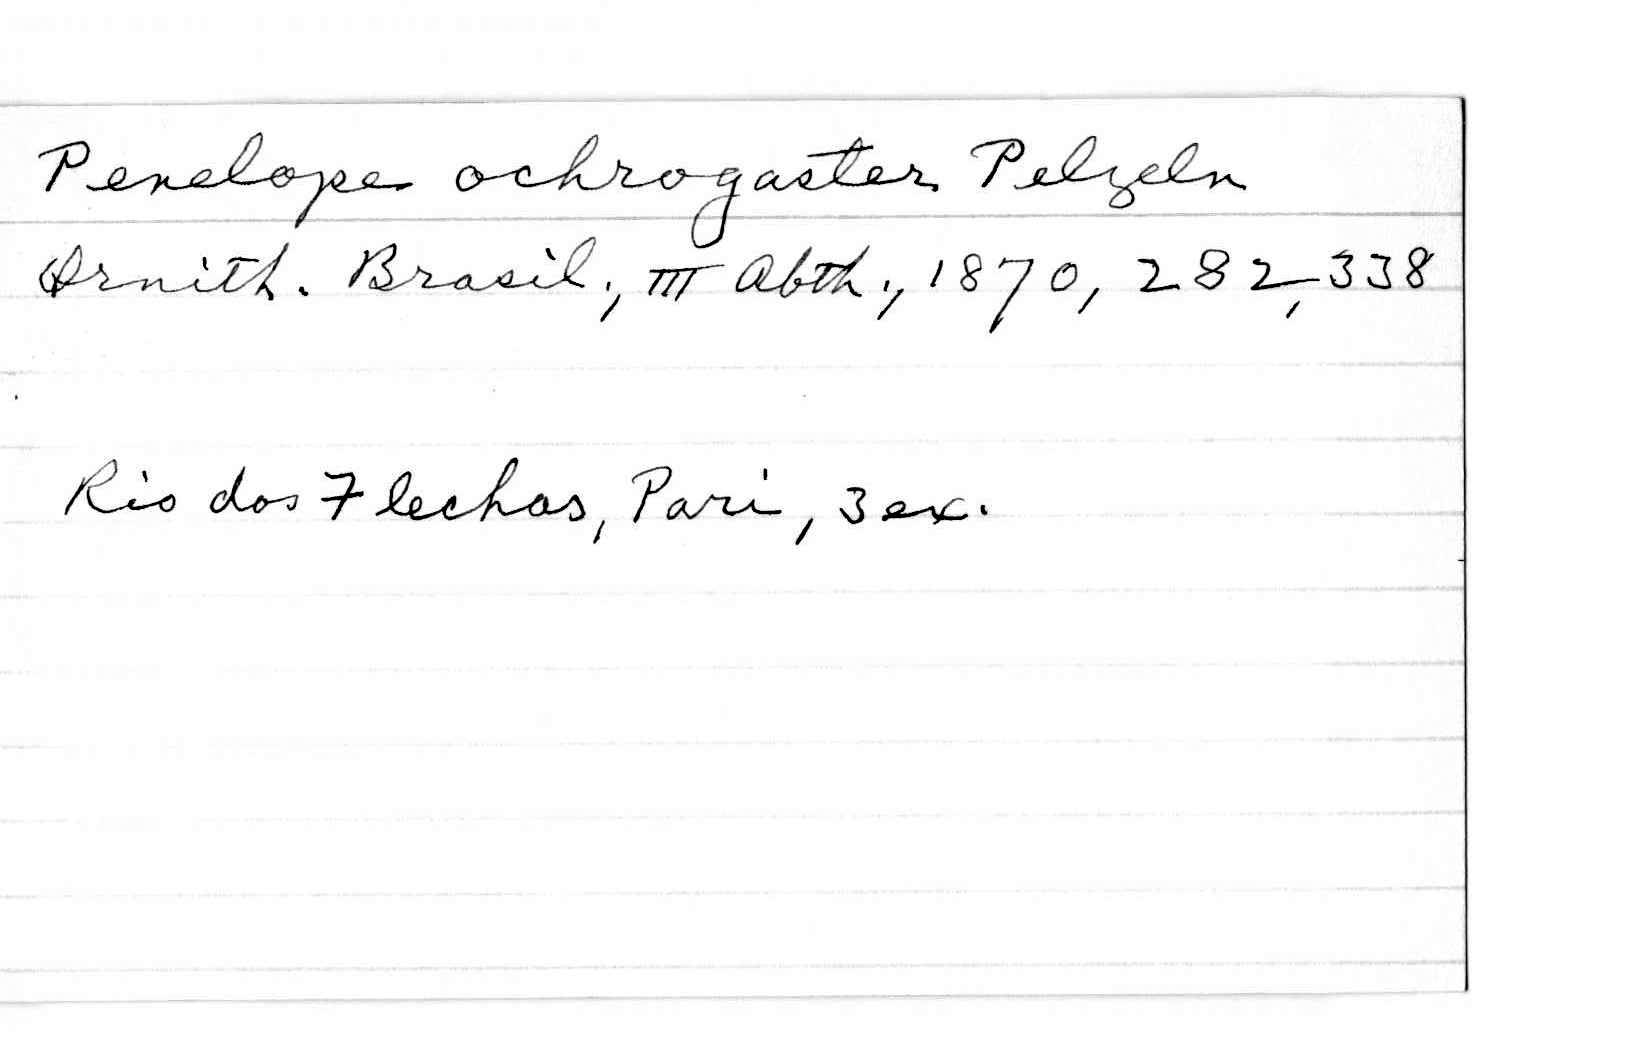 Penelope ochrogaster Pelzeln
Ornith. Brasil., III Abth., 1870, 282, 338
Rio dos Flechas, Pari, 3 ex.